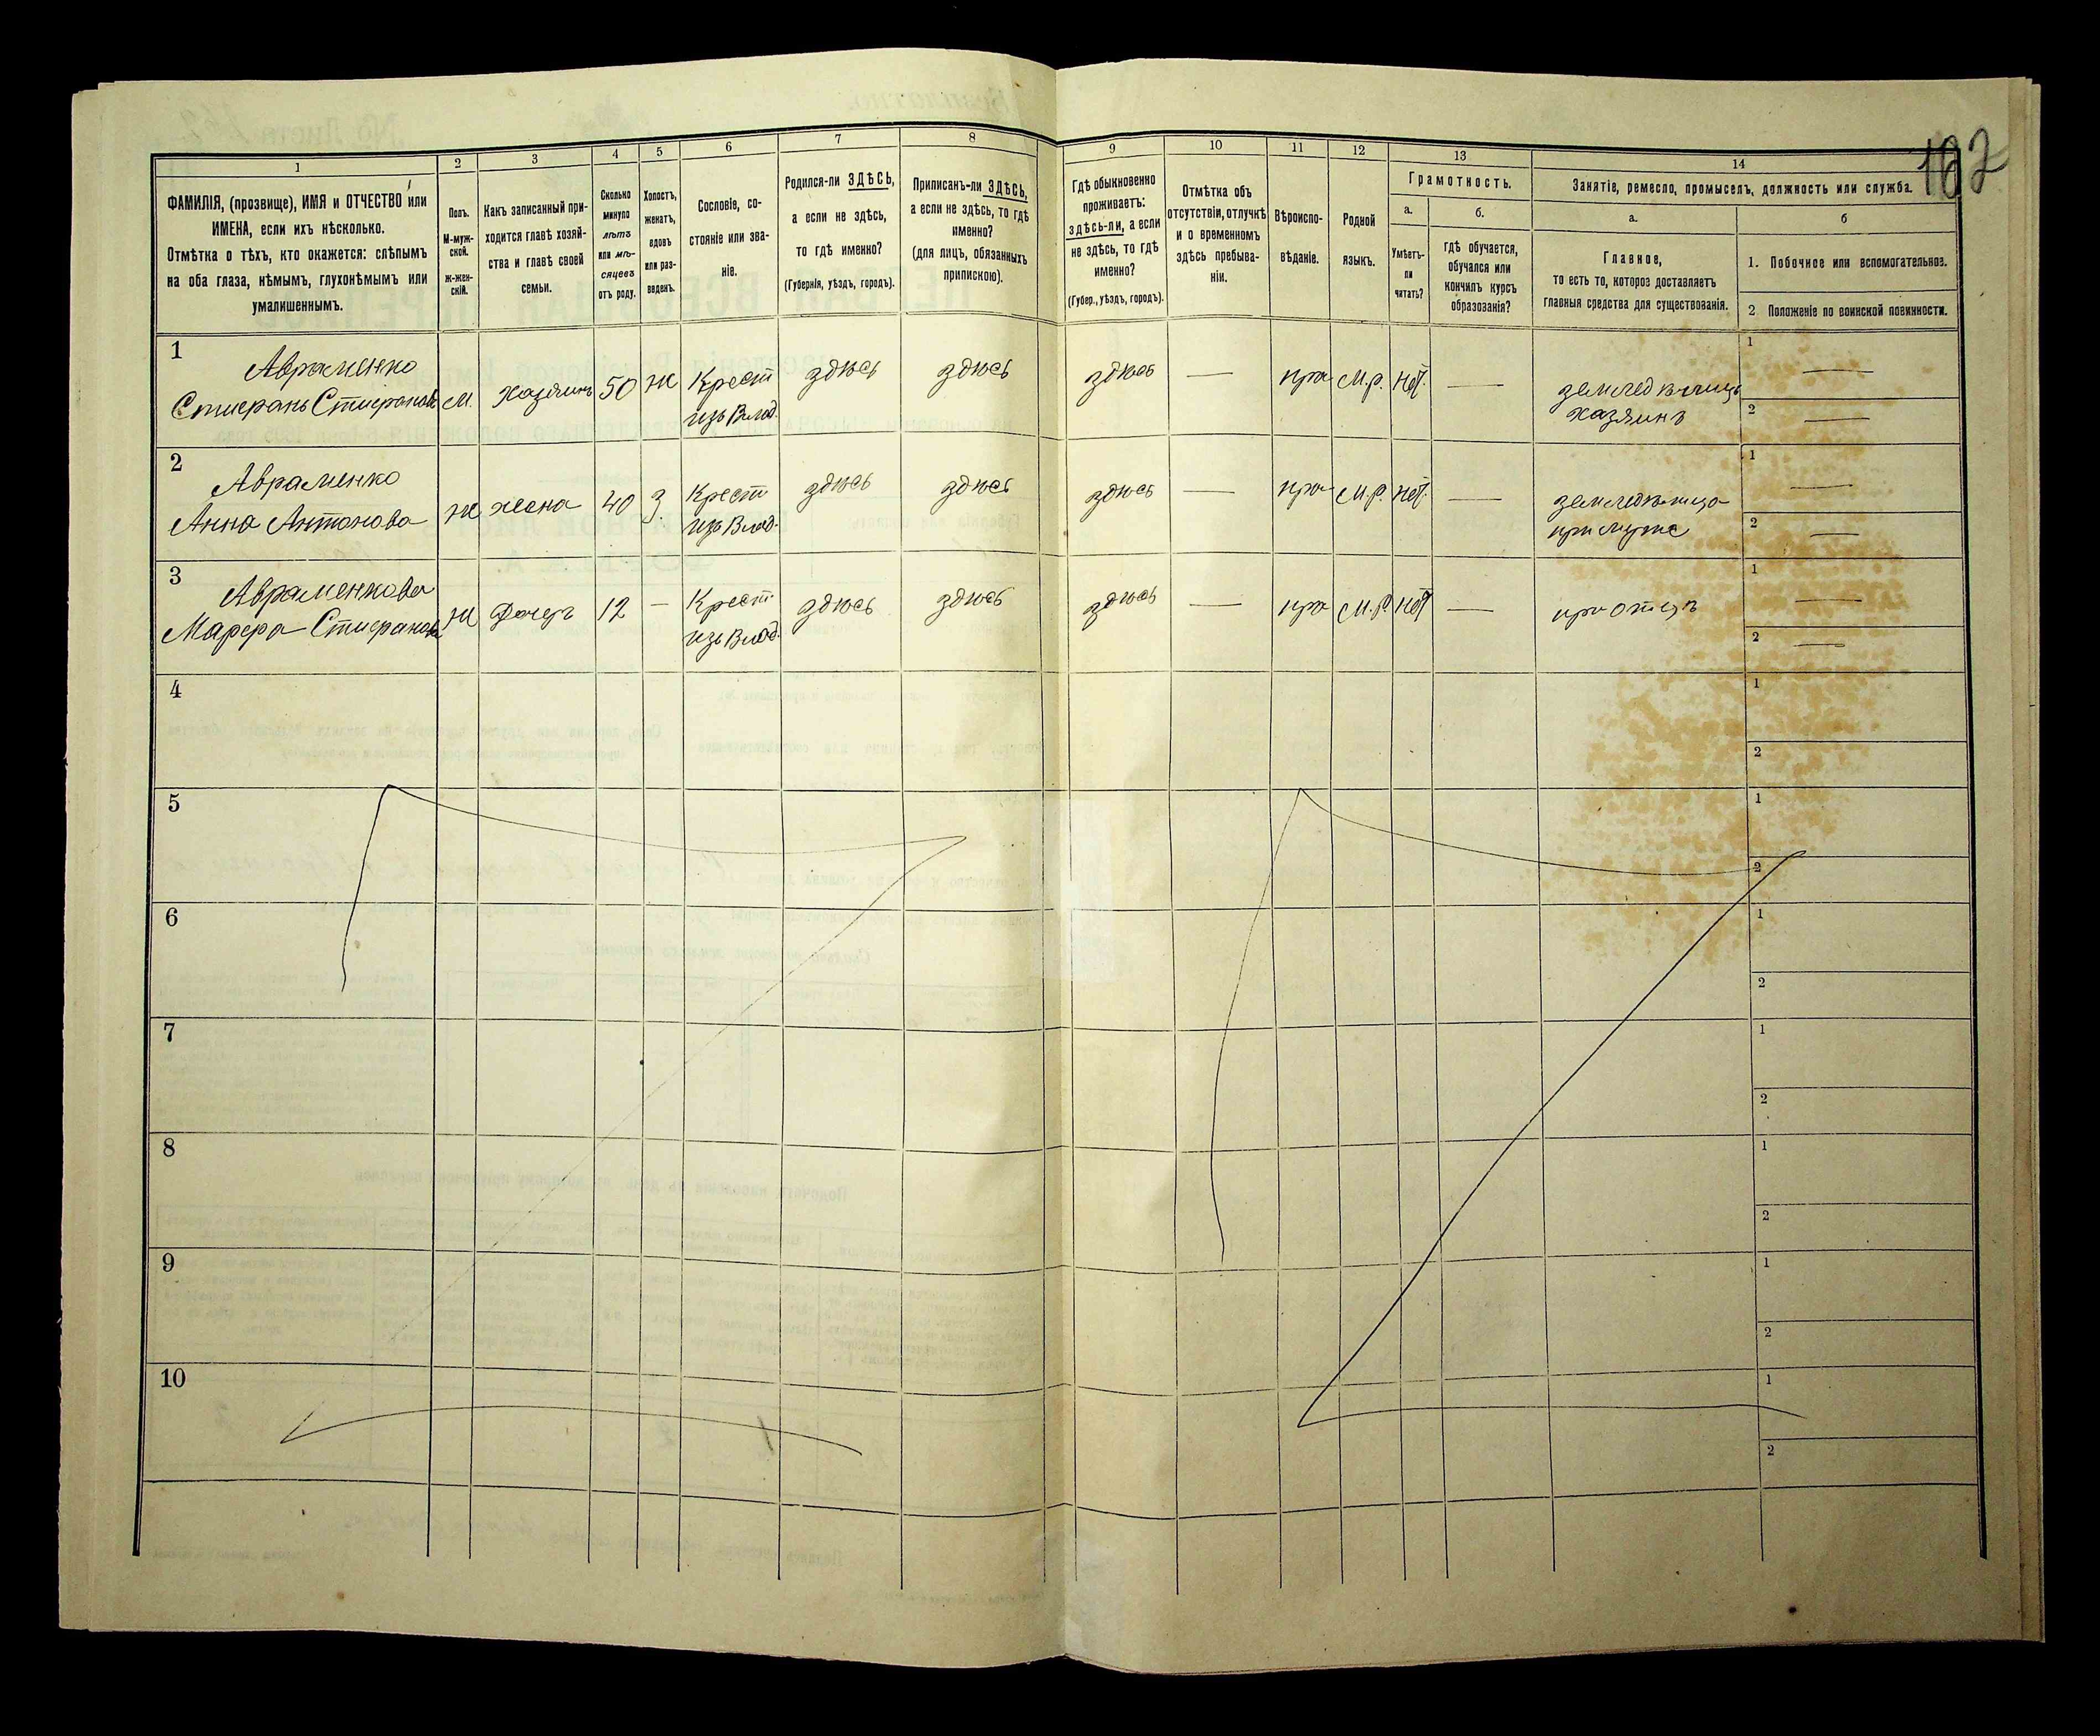 102
1 2 3 4 5 6 7 8 9 10 11 12 13 14
ФАМИЛІЯ, (прозвище), ИМЯ и ОТЧЕСТВО или
ИМЕНА, если ихъ нѣсколько.
Отмѣтка о тѣхъ, кто окажется: слѣпымъ
на оба глаза, нѣмымъ, глухонѣмымъ или
умалишеннымъ.
Полъ.
М-муж-
ской.
Ж-жен-
скій.
Какъ записанный при-
ходится главѣ хозяй-
ства и главѣ своей
семьи.
Сколько
минуло
лѣтъ
или мѣ-
сяцевъ
отъ роду.
Холостъ,
женатъ,
вдовъ
или раз-
веденъ.
Сословіе, со-
стояніе или зва-
ніе.
Родился-ли ЗДѢСЬ,
а если не здѣсь,
то гдѣ именно?
(Губернія, уѣздъ, городъ).
Приписанъ-ли ЗДѢСЬ,
а если не здѣсь, то гдѣ
именно?
(для лицъ, обязанныхъ
припискою).
Гдѣ обыкновенно
проживаетъ:
здѣсь-ли, а если
не здѣсь, то гдѣ
именно?
(Губер., уѣздъ, городъ).
Отмѣтка объ
отсутствіи, отлучкѣ
и о временномъ
здѣсь пребыва-
ніи.
Вѣроиспо-
вѣданіе.
Родной
языкъ.
Грамотность.
а.
Умѣетъ-
ли
читать?
б.
гдѣ обучается,
обучался или
кончилъ курсъ
образованія?
Занятіе, ремесло, промыселъ, должность или служба.
а.
Главное,
то есть то, которое доставляетъ
главныя средства для существованія.
б
1. Побочное или вспомогательное.
2 Положеніе по воинской повинности.
1 Авраменко
Стефанъ Стефановъ М. Хазяинъ 50 Ж Крест изъ Влад. здѣсь здѣсь здѣсь — пра М.р. Нѣт. — землед ѣлецъ Хазяинъ 1 — 2 —
2 Авраменко
Анна Антонова Ж жена 40 З Крест изъ Влад. здѣсь здѣсь здѣсь — пра М.р. Нѣт. — земледѣлица при мужѣ 1 — 2 —
3 Авраменкова
Марфа Стефанова Ж Дочерь 12 — Крест изъ Влад. здѣсь здѣсь здѣсь — пра М.р Нѣт — при отцѣ 1 — 2 —
4 1 2
5 1 2
6 1 2
7 1 2
8 1 2
9 1 2
10 1 2